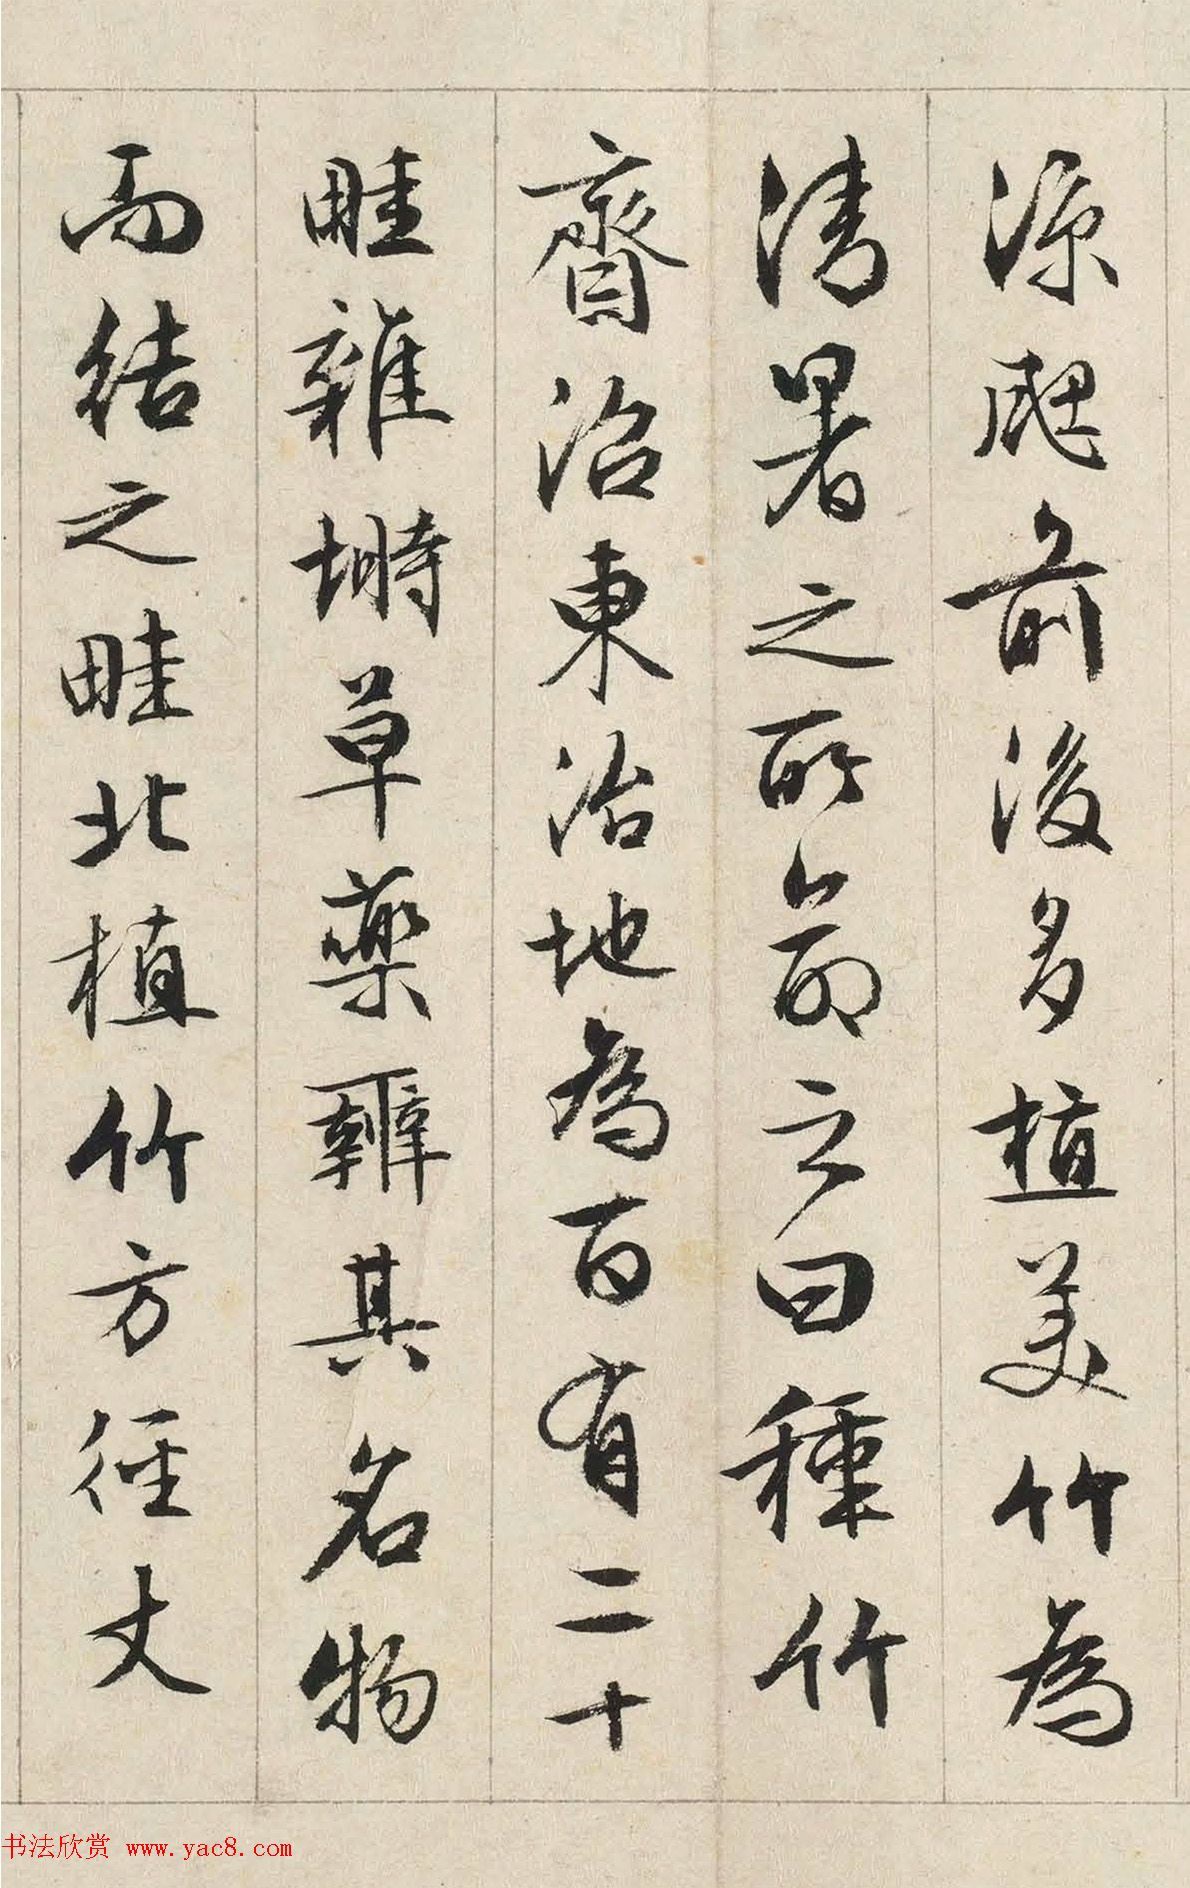 涼颸前後多植美竹為
清暑之所命之曰種竹
齋沼東治地為百有二十
畦雜塒草藥辨其名物
而結之畦北植竹方徑丈
书法欣赏 www.yac8.com